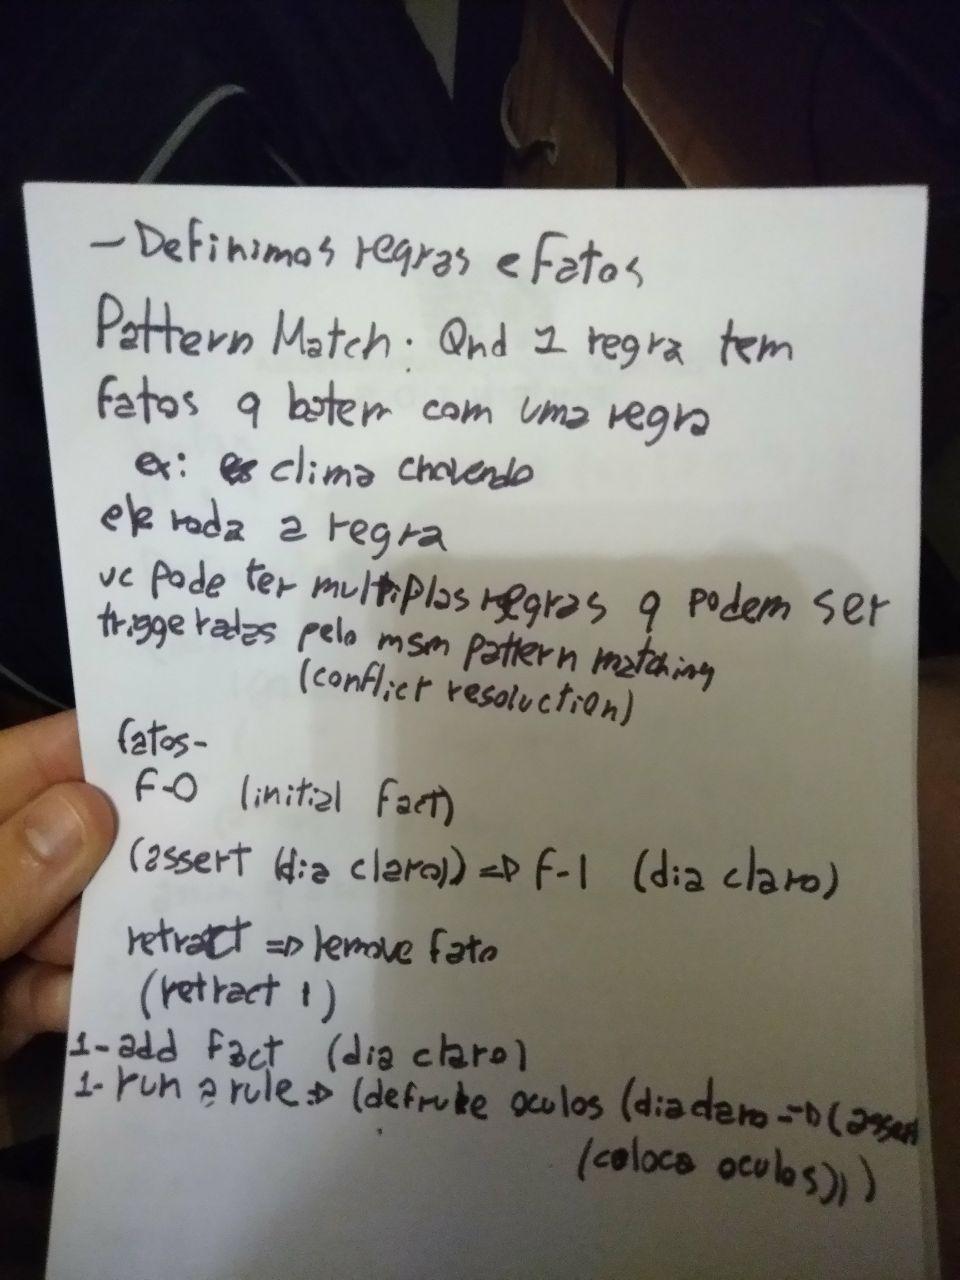 - Definimos regras e fatos
Pattern Match. Qnd 1 regra tem
fatos q batem com uma regra
ex: clima chovendo
ele roda a regra
vc pode ter multiplas regras q podem ser
triggeradas pelo msm pattern matching
(conflict resoluction)
fatos-
F-0 (initial fact)
(assert (dia claro)) => F-1 (dia claro)
retract => remove fato
(retract 1)
1- add fact (dia claro)
1- run a rule => (defrule oculos (dia claro => (assert
(coloca oculos))))